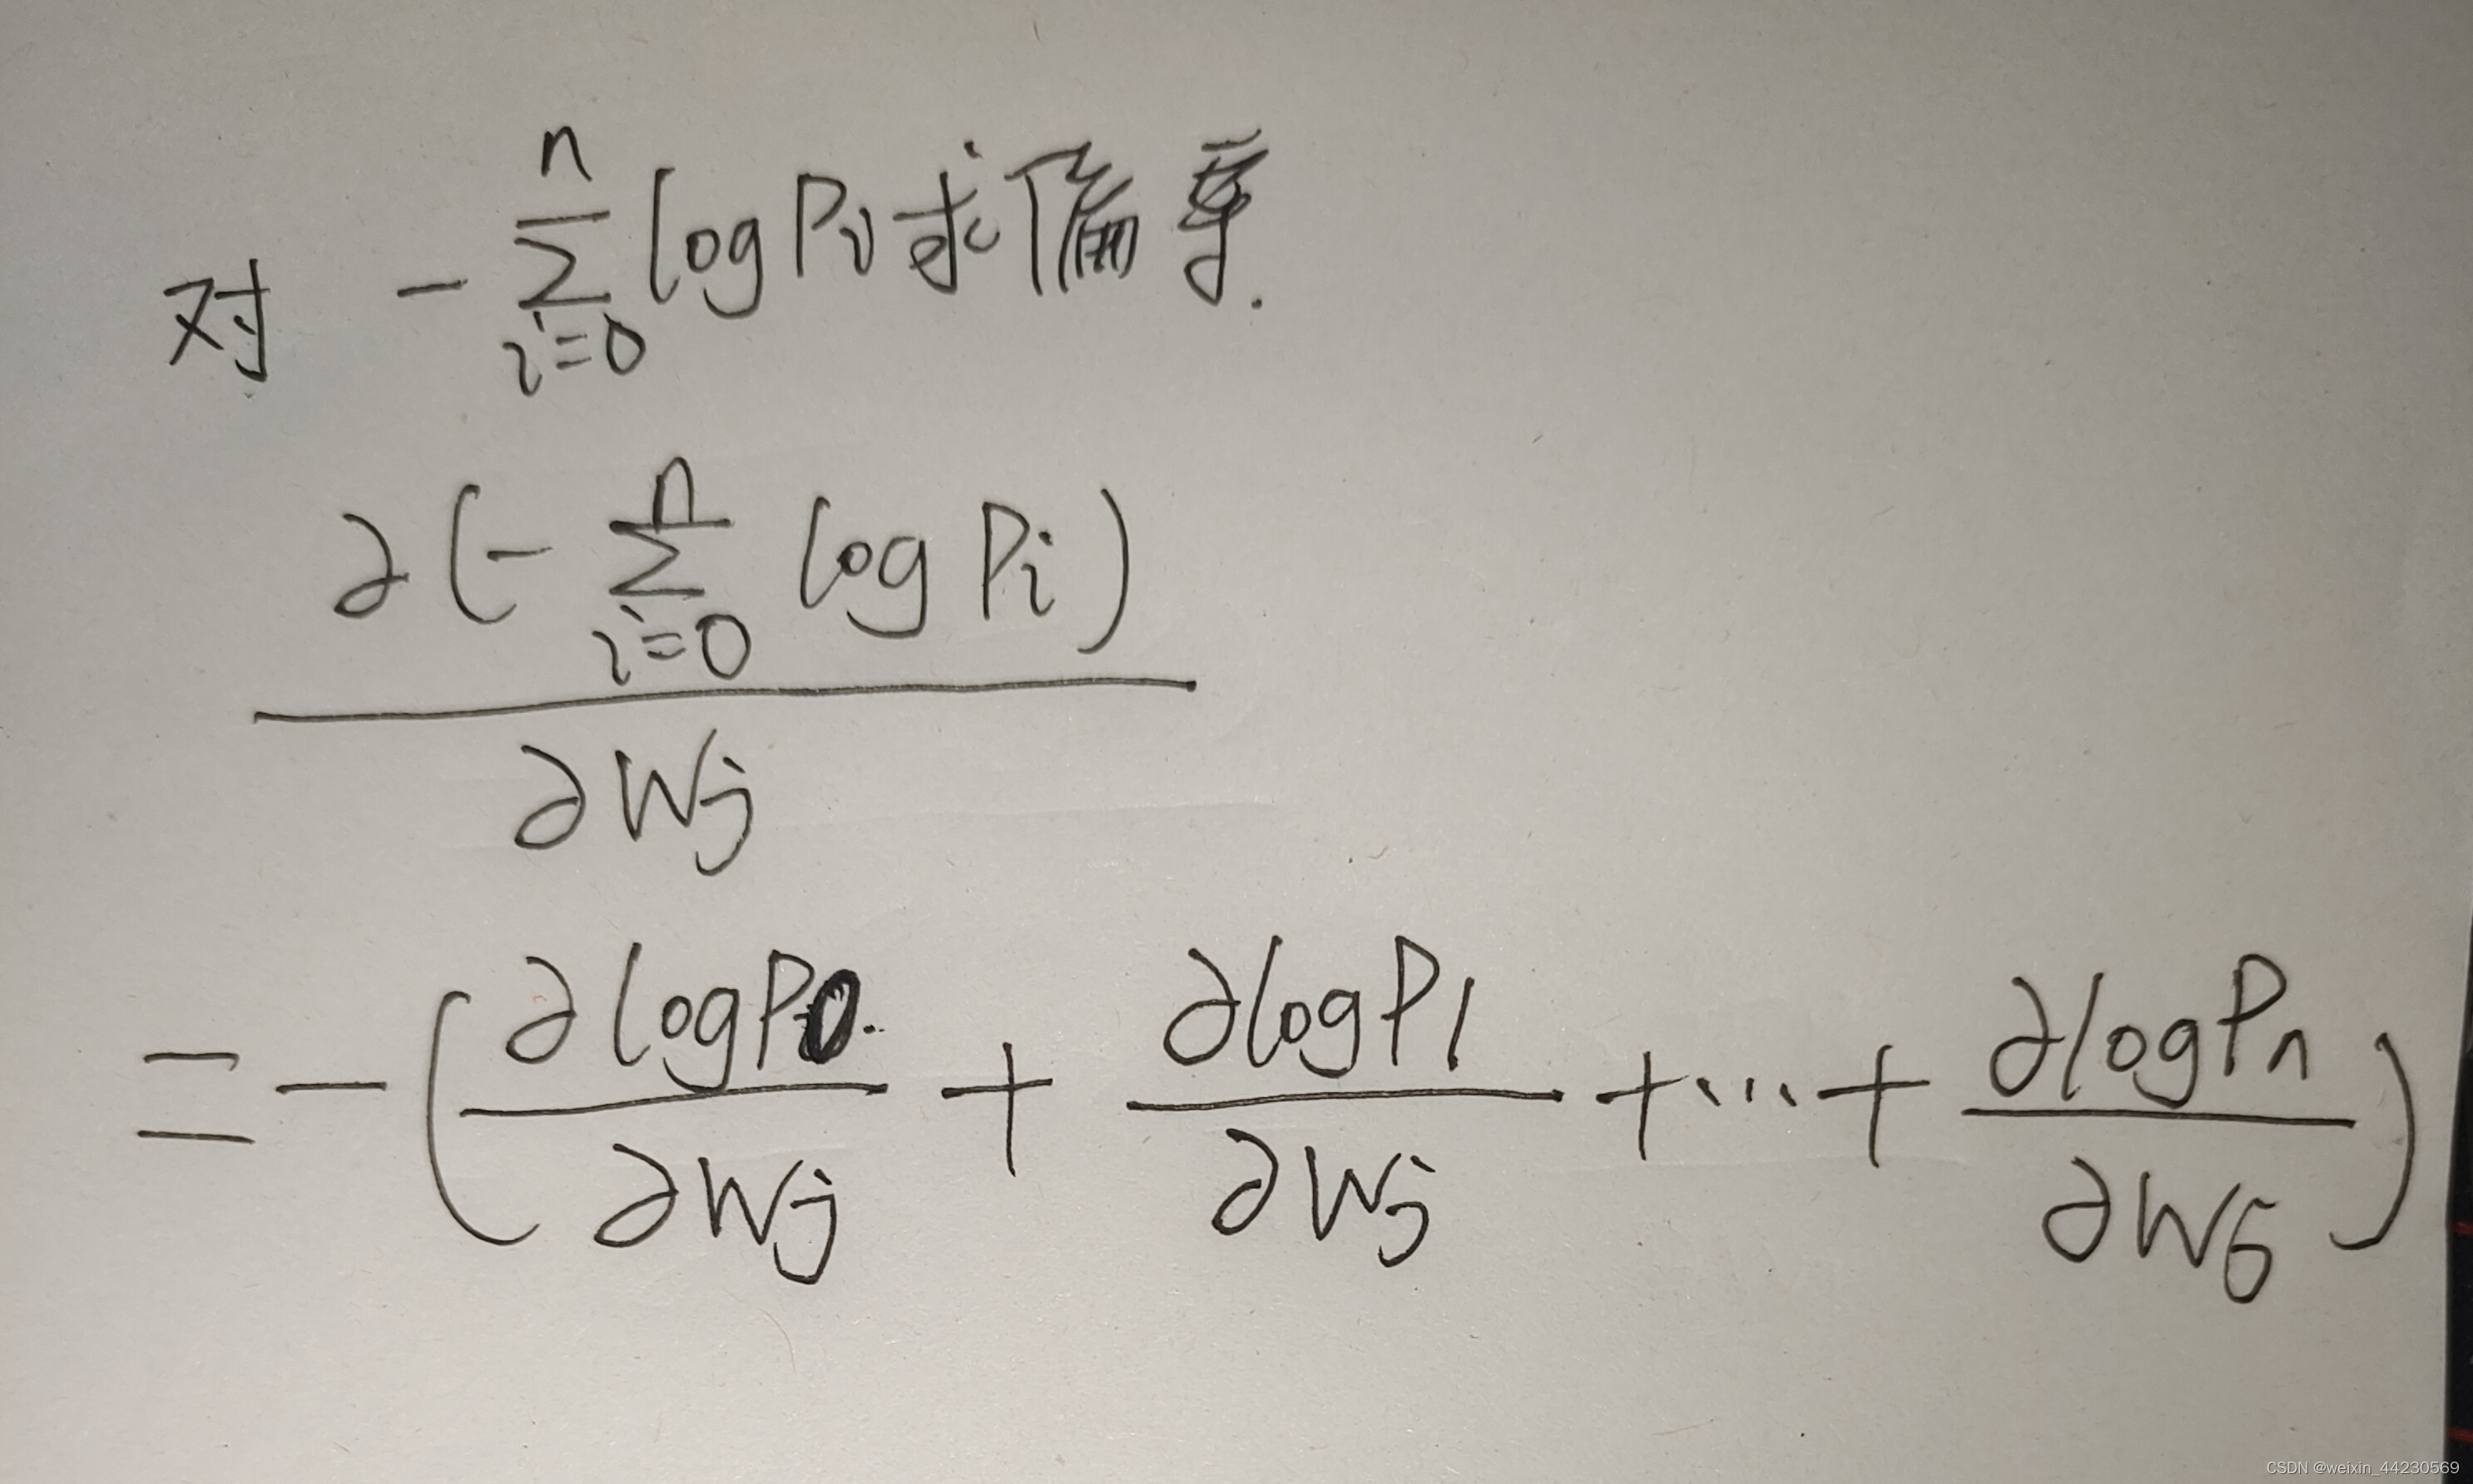 对 -∑_{i=0}^{n} log Pi 求偏导.
∂(-∑_{i=0}^{n} log Pi)
∂Wj
= -(∂logP0/∂Wj + ∂logP1/∂Wj + ... + ∂logPn/∂Wj)
CSDN @weixin_44230569